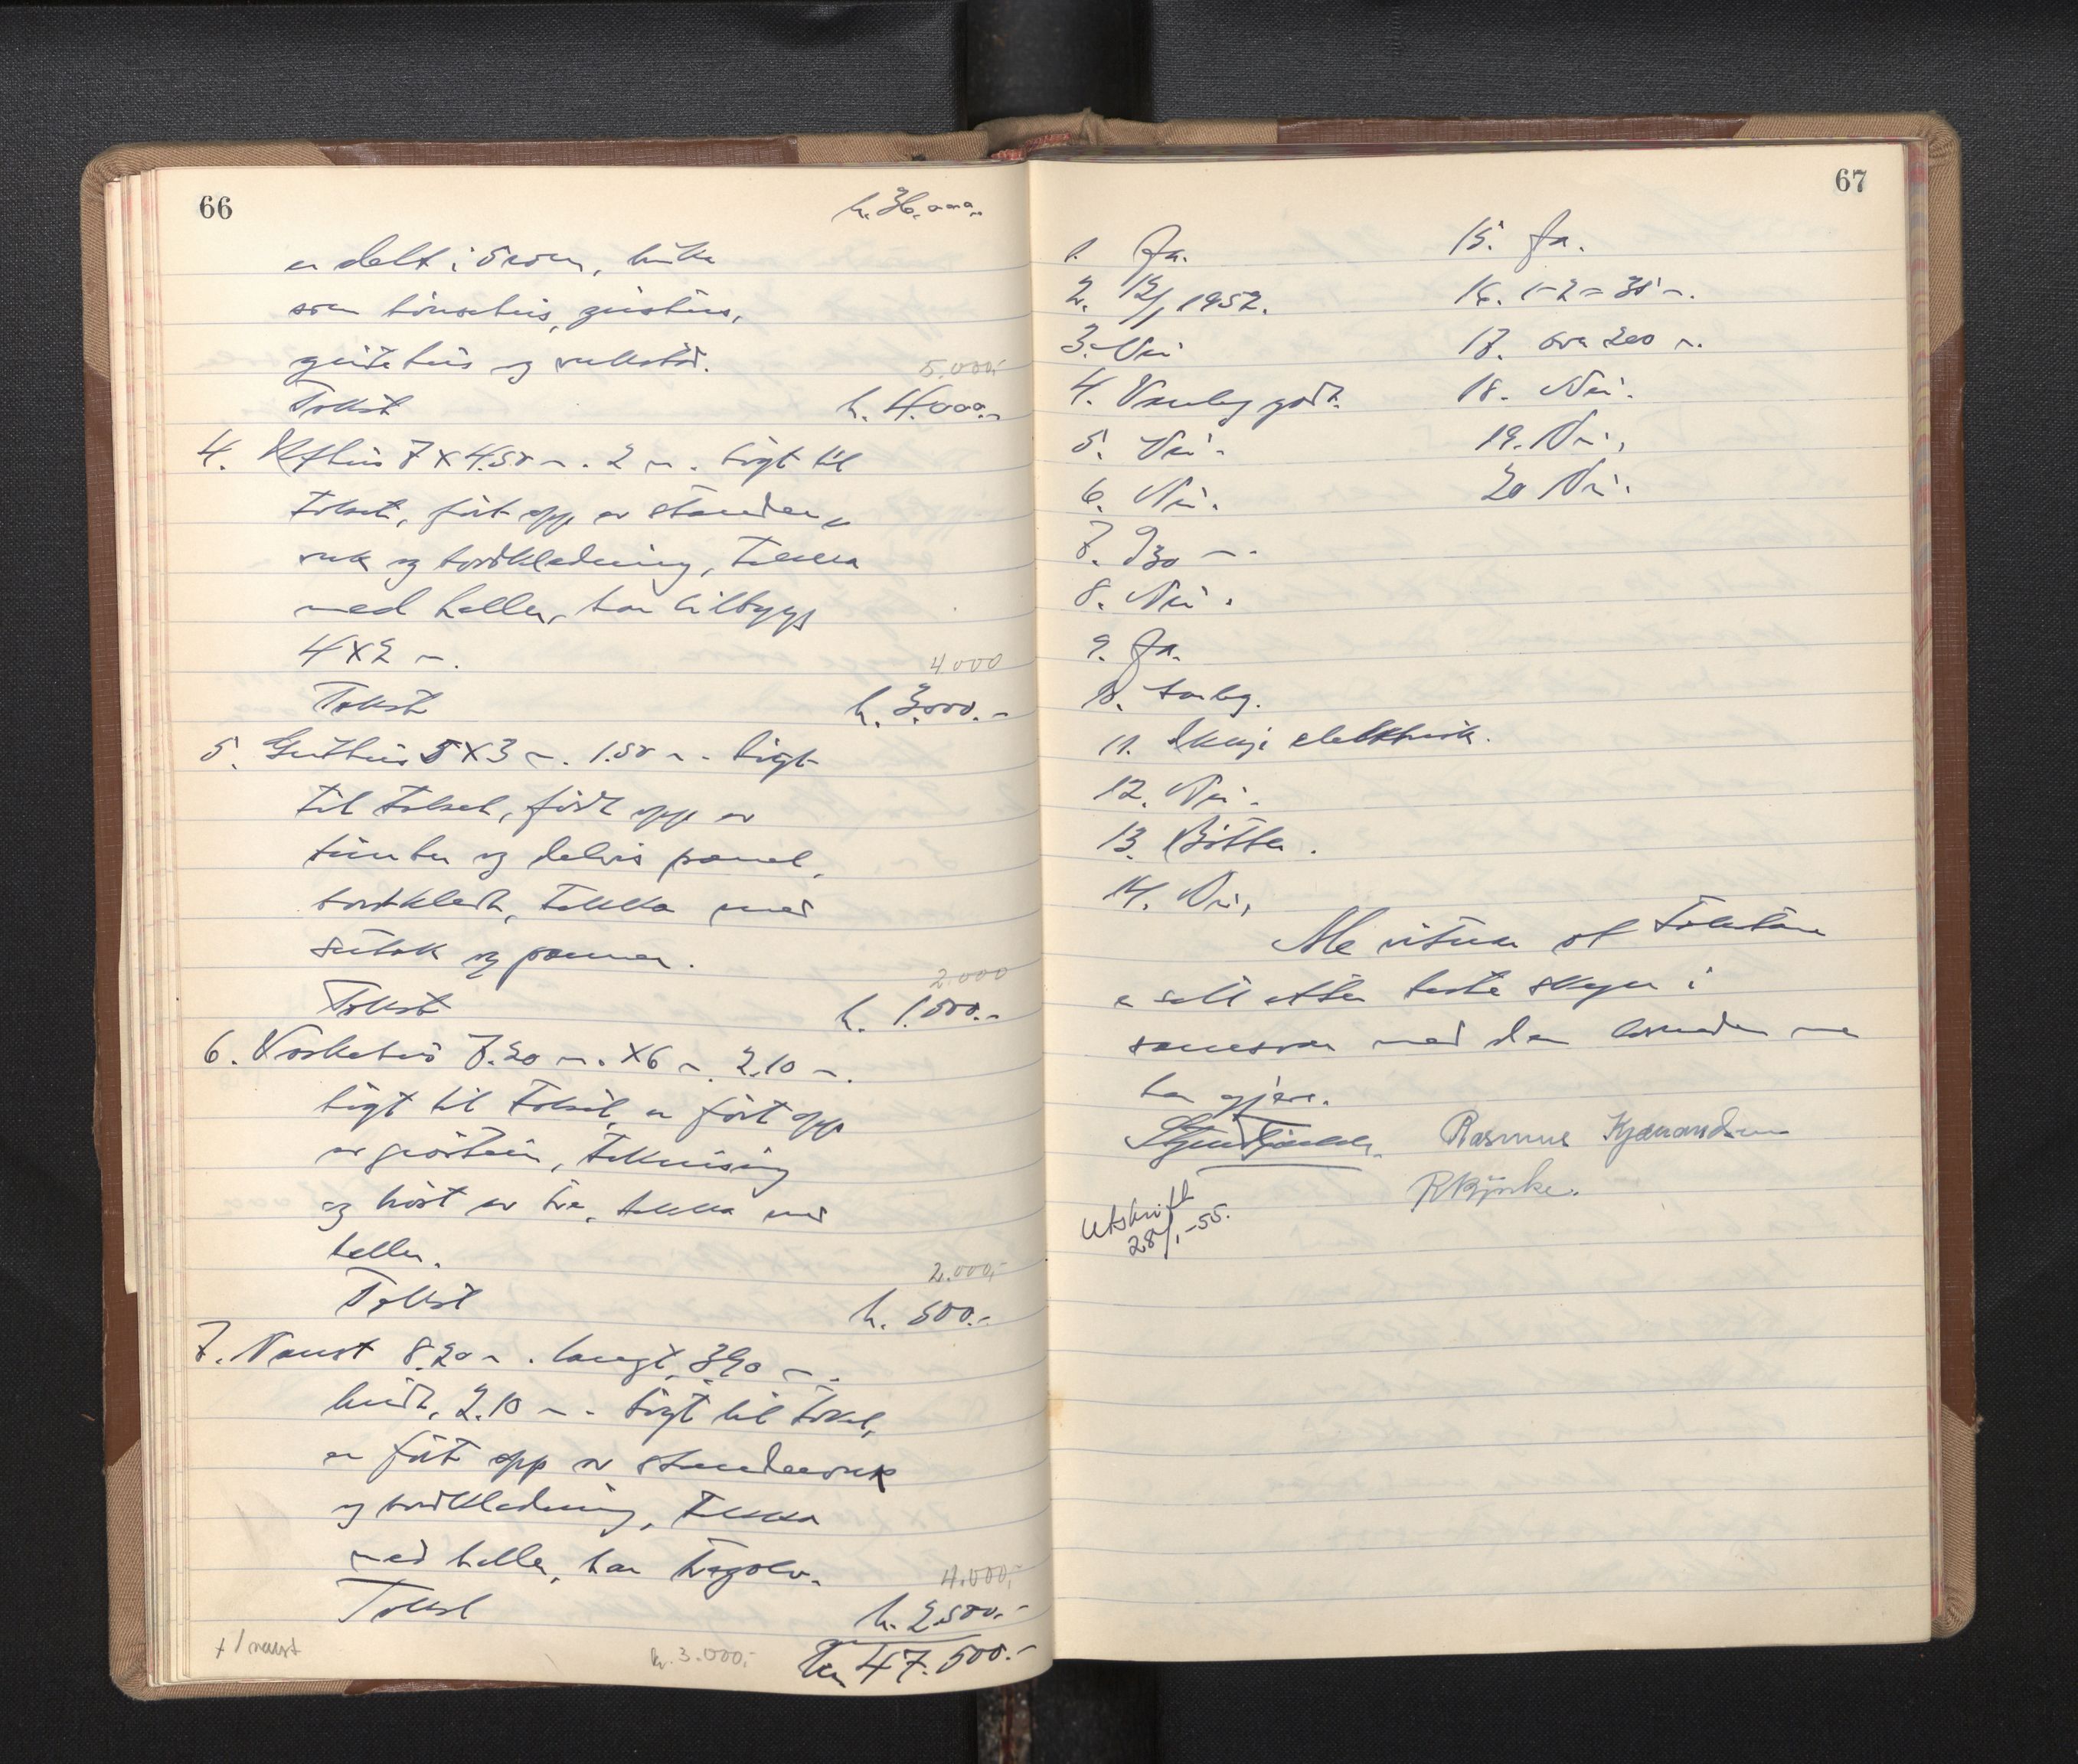 66
kr. 36.000.-
er delt i 5 rom, bruka
som hønsehus, grishus,
geitehus og vedskot.
5.000,-
Takst kr. 4.000.-
4. 7 x 4.50 m. 2 m. høgt til
taket, ført opp av stander
verk og bordkledning, tekka
med heller, har tilbygg
4 x 2 m.
4.000
Takst kr. 3.000.-
5. 5 x 3 m. 1.50 m. høgt
til taket, ført opp av
timber og delvis panel,
bordkledt, tekka med
sutak og panner.
2.000
Takst kr. 1.500.-
6. Vaskehus 7.20 m. x 6 m. 2.10 m.
høgt til taket, er ført opp
av gråstein,
og røst av tre, tekka med
heller.
2.000,-
Takst kr. 500.-
7. Naust 8.20 m. langt, 3.90 m.
breidt, 2.10 m. høgt til taket,
er ført opp av standerverk
og bordkledning, tekka
med heller, har tregolv.
4.000,-
Takst kr. 2.500.-
+ 1 naust kr. 3.000,- kr. 47.500.-
67
1. Ja.
2. 12/1 1952.
3. Nei
4. Vanleg godt.
5. Nei.
6. Nei.
7. 930 m.
8. Nei.
9. Ja.
10. Farleg.
11. elektrisk.
12. Nei.
13. Bøtter.
14. Nei,
15. Ja.
16. 1-2 = 35 m.
17. over 200 m.
18. Nei.
19. Nei,
20 Nei.
Me vitnar at takstane
er sett etter beste skjøn i
samsvar med den me
har gjere.
Rasmus
R Bjørke.
Utskrift
28/1-55.